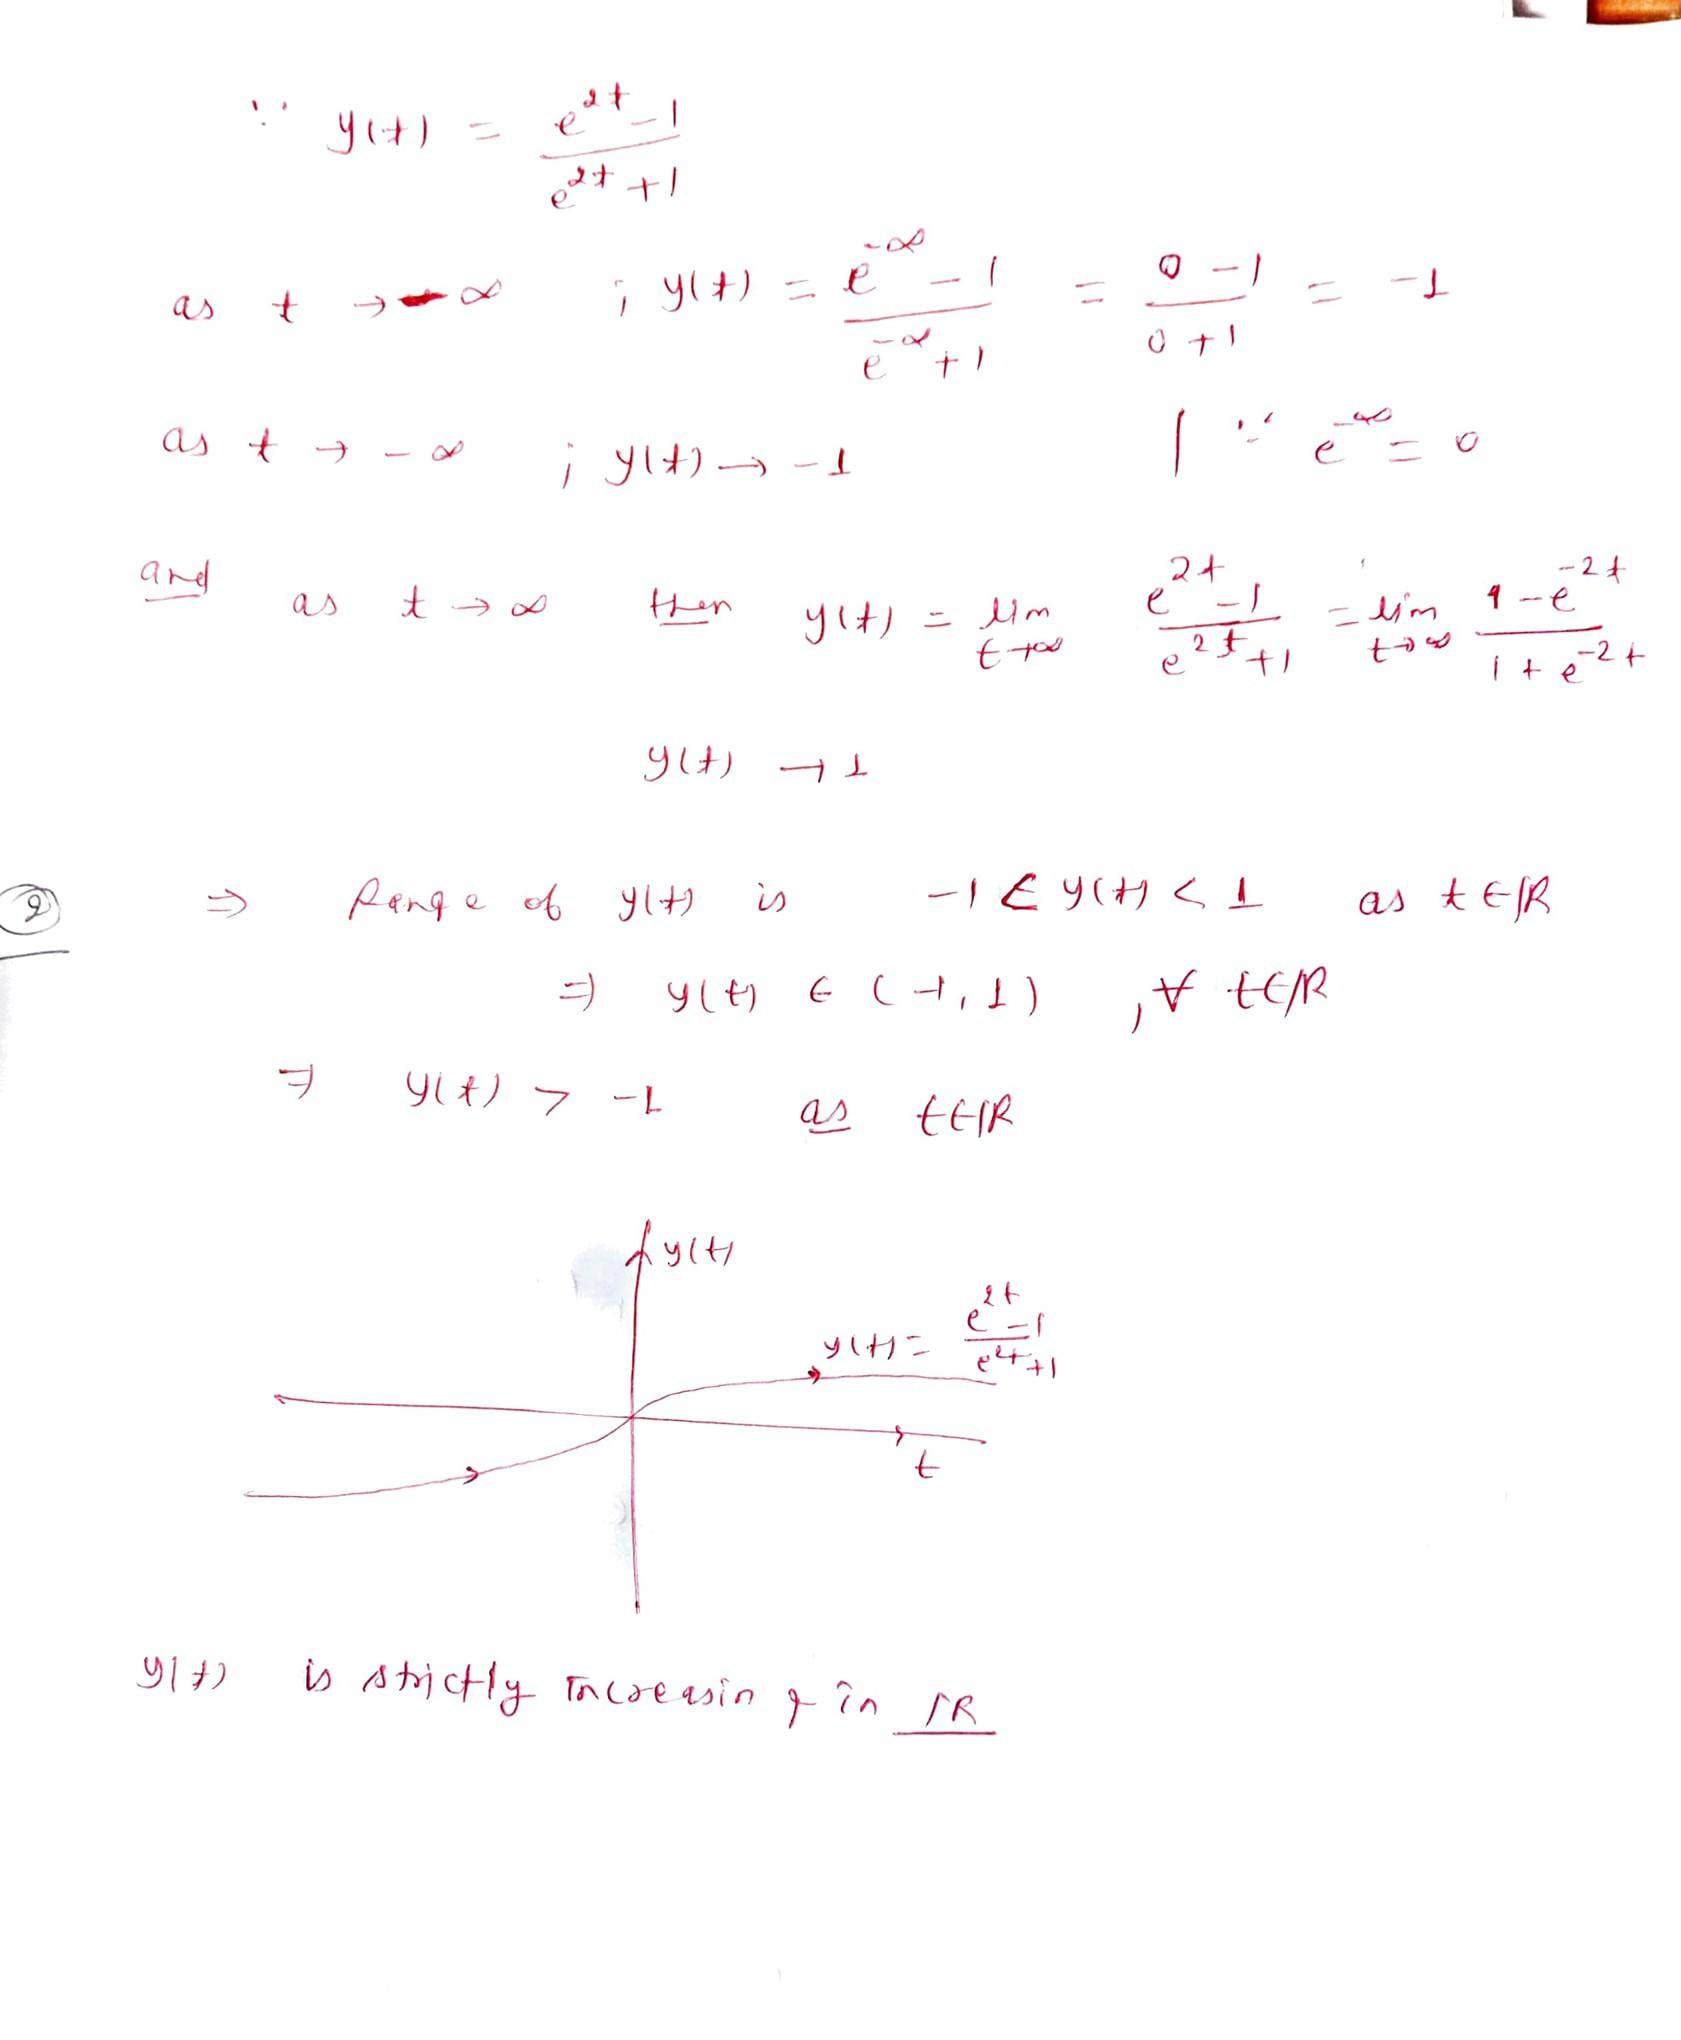 ∵ y(t) = (e^{2t} - 1)/(e^{2t} + 1)
as t → -∞ ; y(t) = (e^{-∞} - 1)/(e^{-∞} + 1) = (0 - 1)/(0 + 1) = -1
as t → -∞ ; y(t) → -1 | ∵ e^{-∞} = 0
and as t → ∞ then y(t) = lim_{t→∞} (e^{2t} - 1)/(e^{2t} + 1) = lim_{t→∞} (1 - e^{-2t})/(1 + e^{-2t})
y(t) → 1
② ⇒ Range of y(t) is -1 < y(t) < 1 as t ∈ ℝ
⇒ y(t) ∈ (-1, 1) , ∀ t ∈ ℝ
⇒ y(t) > -1 as t ∈ ℝ
y(t)
y(t) = (e^{2t} - 1)/(e^{2t} + 1)
t
y(t) is strictly increasing in ℝ